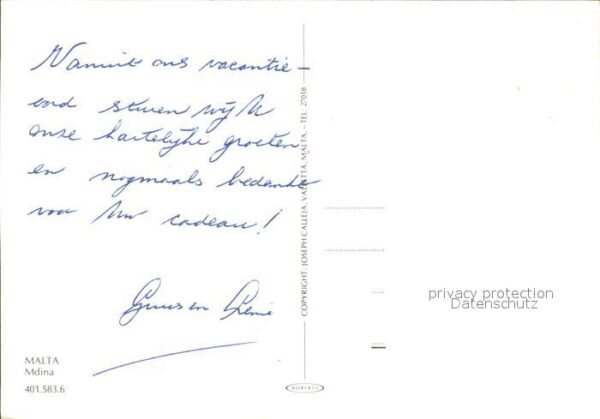 Vanuit ons vacantie-
oord sturen wij U
onze hartelijke groeten
en nogmaals bedankt
voor Uw cadeau!
Guus en
MALTA
Mdina
401.583.6
COPYRIGHT: JOSEPH CALLEIA, VALLETTA, MALTA. - TEL. 27018
privacy protection
Datenschutz